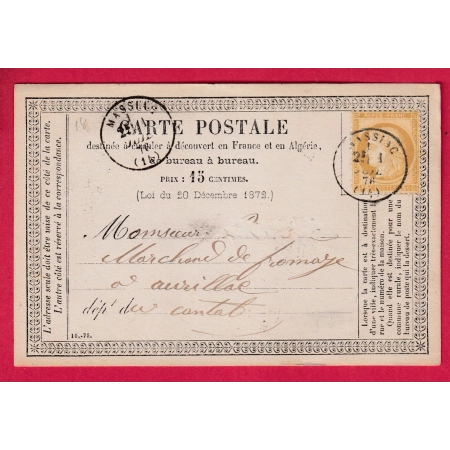 CARTE POSTALE
destinée à circuler à découvert en France et en Algérie,
de bureau à bureau.
PRIX : 15 CENTIMES.
(Loi du 20 Décembre 1872.)
Monsieur ?
Marchand de fromage
à aurillac
dép.t du cantal
11.-71.
L'adresse seule doit être mise de ce côté de la carte.
L'autre côté est réservé à la correspondance.
MASSIAC
(14)
MASSIAC
Lorsque la carte est à destination
d'une ville, indiquer très-exactement la
rue et le numéro de la maison.
Quand elle est destinée pour une
commune rurale, indiquer le nom du
bureau de poste qui la dessert.